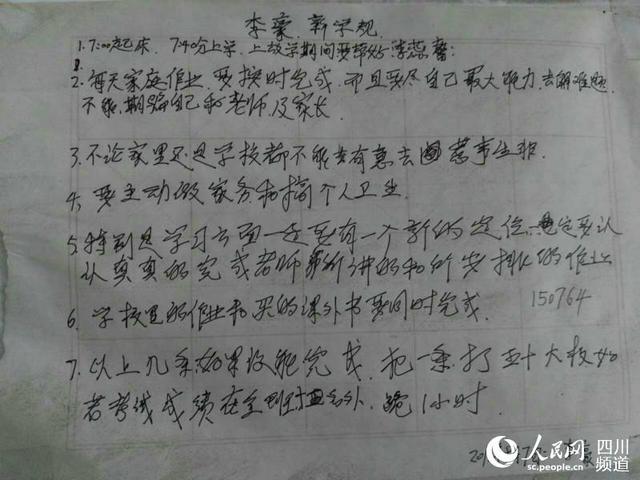 李豪新家规
1. 7:00起床 7:40分上学 上放学期间要带好李蕊馨:
2. 每天家庭作业,要按时完成,而且要尽自己最大能力,去解难题
不能,期骗自己和老师,及家长
3. 不论家里还是学校都不能去有意去惹事生非.
4. 要主动做家务和搞个人卫生
5. 特别是学习方面一定要有一个新的定位,一定要认
认真真的完成老师所讲的和所安排的作业
6. 学校里的作业和买的课外书要同时完成.
150764
7. 以上几条如果没能完成,把一条打五十大板如
若考试成绩在全班 名外,跪1小时
人民网 四川频道
sc.people.com.cn